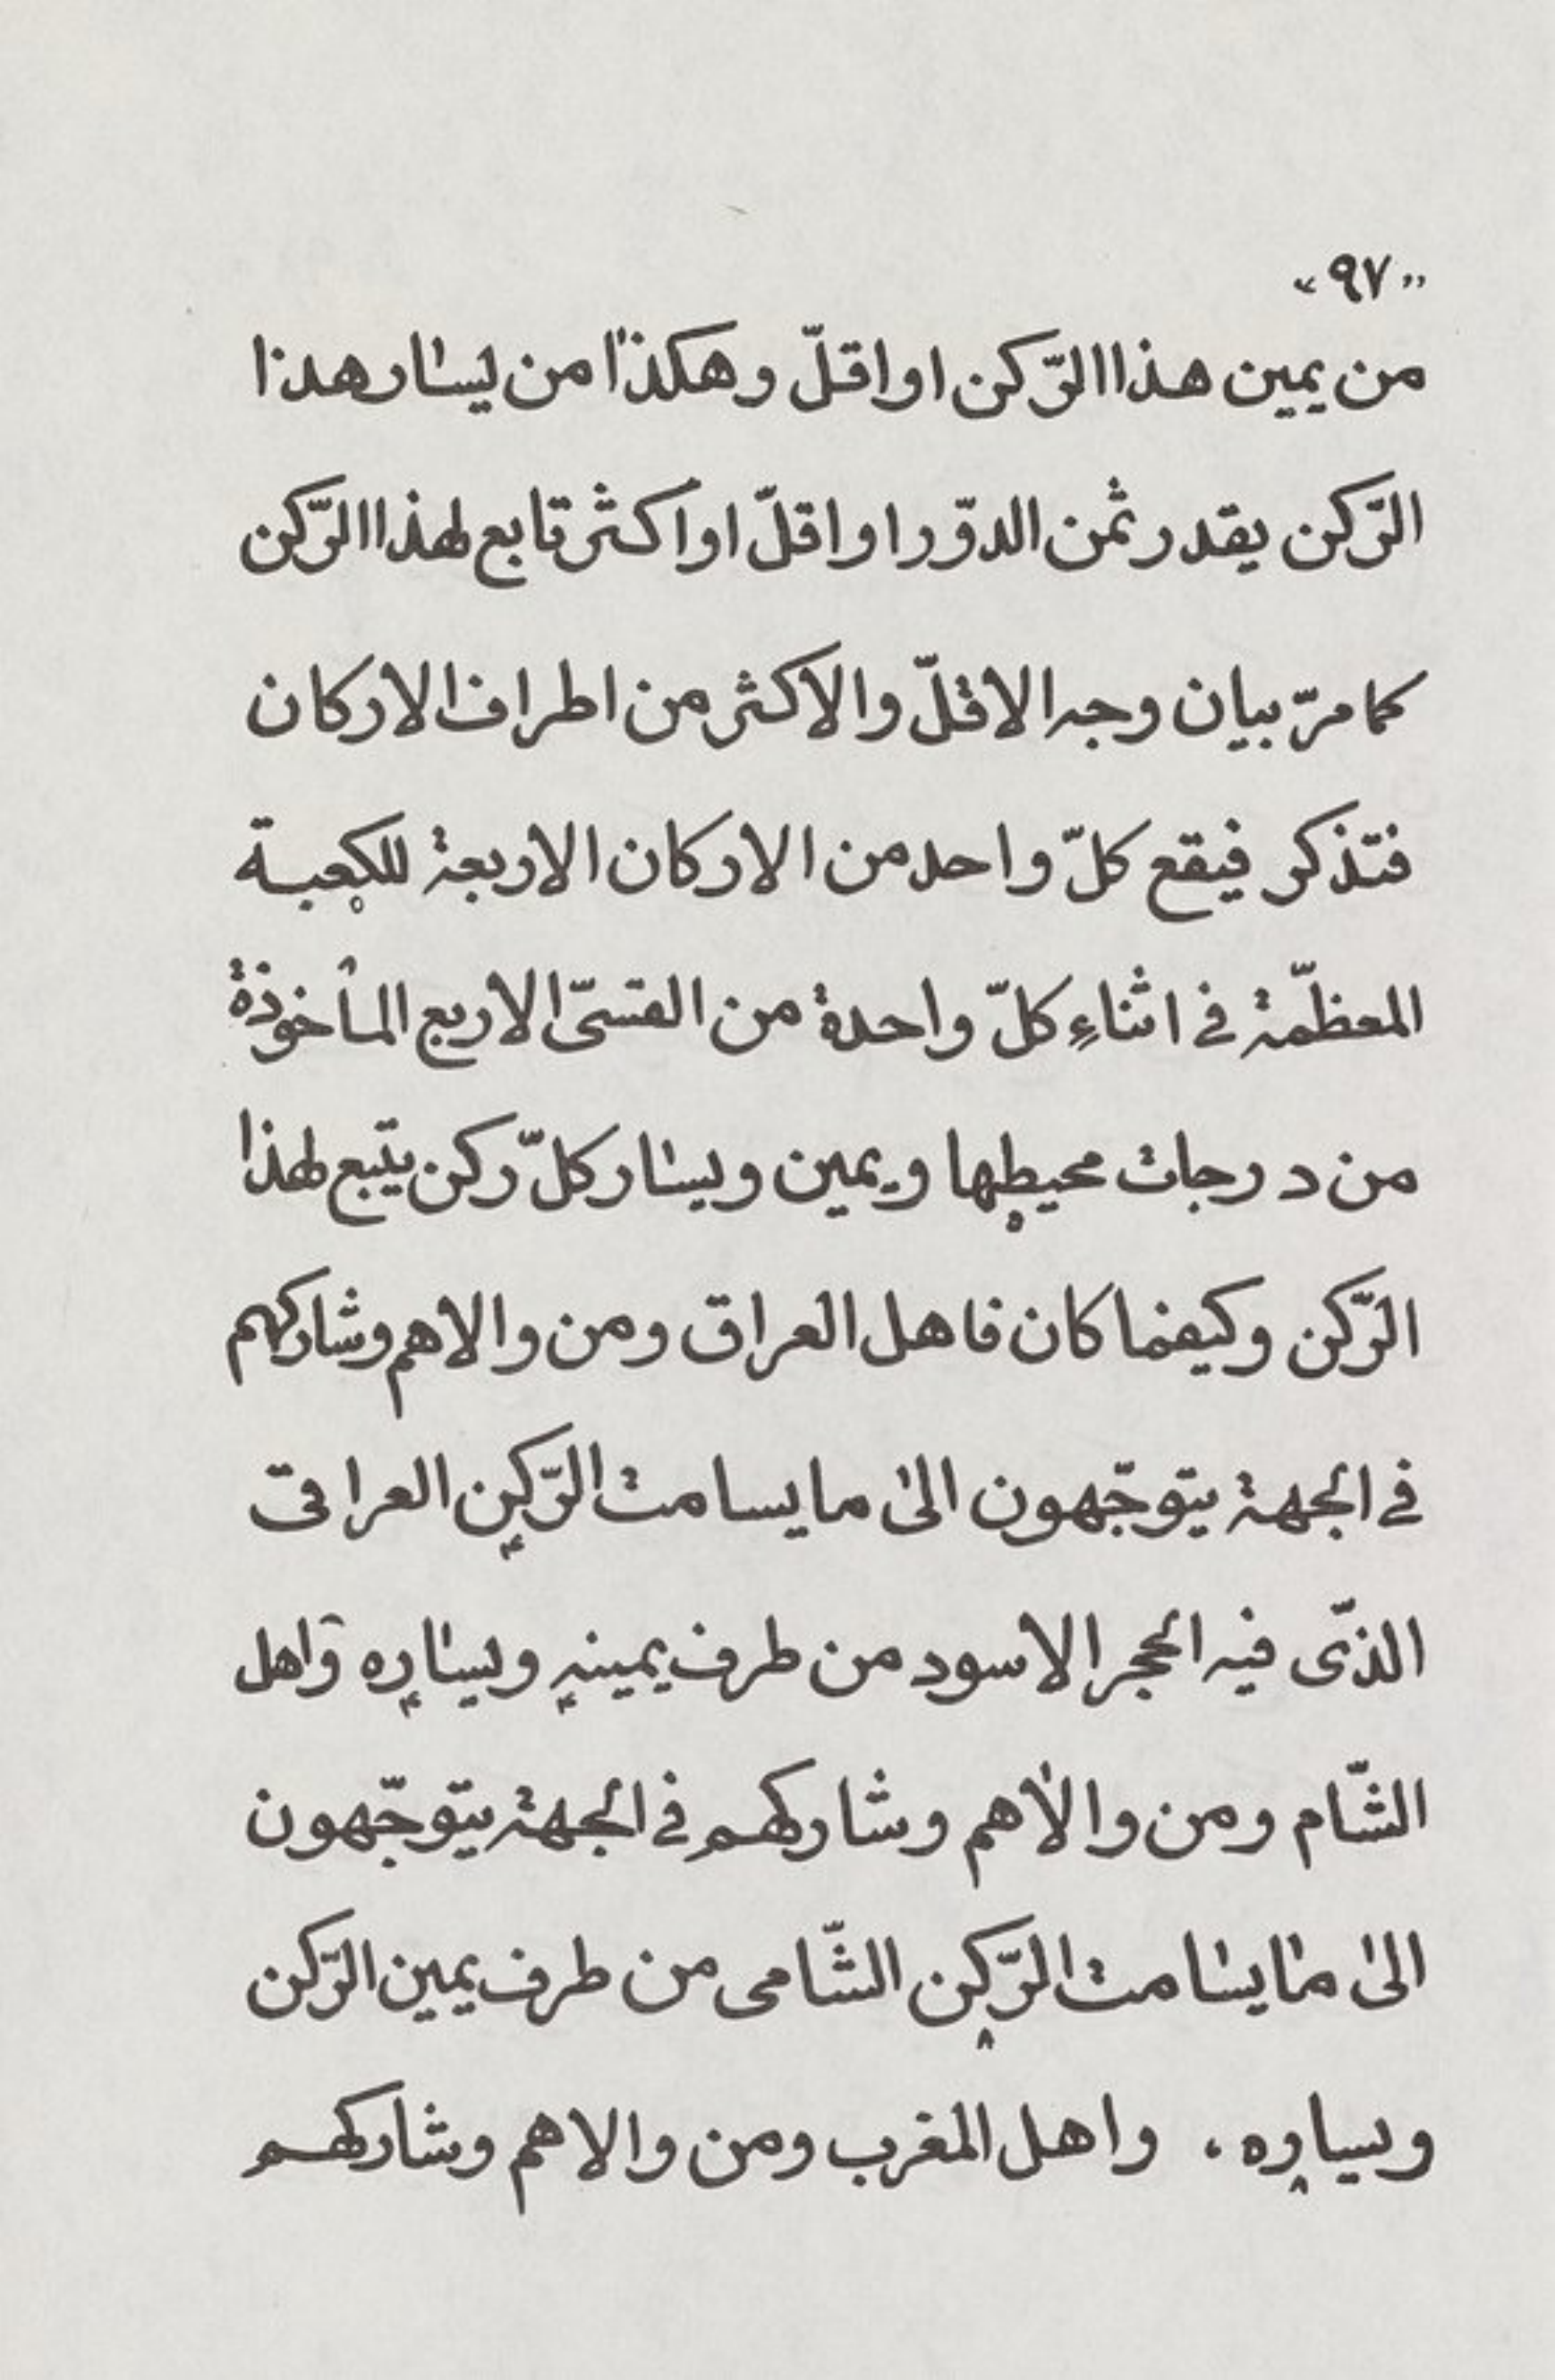 «٩٧»
من يمين هذا الرّكن او اقلّ وهكذا من يسار هذا
الرّكن يقدر ثمن الدوّر او اقلّ او اكثر تابع لهذا الرّكن
كما مرّ بيان وجه الاقلّ والاكثر من اطراف الاركان
فتذكر فيقع كلّ واحد من الاركان الاربعة للكعبة
المعظّمة فى اثناءِ كلّ واحدة من القسىّ الاربع المأخوذة
من درجات محيطها ويمين ويسار كلّ ركن يتبع لهذا
الرّكن وكيفما كان فاهل العراق ومن والاهم وشاركهم
فى الجهة يتوجّهون الى ما يسامت الرّكن العراقى
الذّى فيه الحجر الاسود من طرف يمينهِ ويسارِه وَاهل
الشّام ومن والاهم وشاركهم فى الجهة يتوجّهون
الى ما يسامت الرّكن الشّامى من طرف يمين الرّكن
ويساره . واهل المغرب ومن والاهم وشاركهم